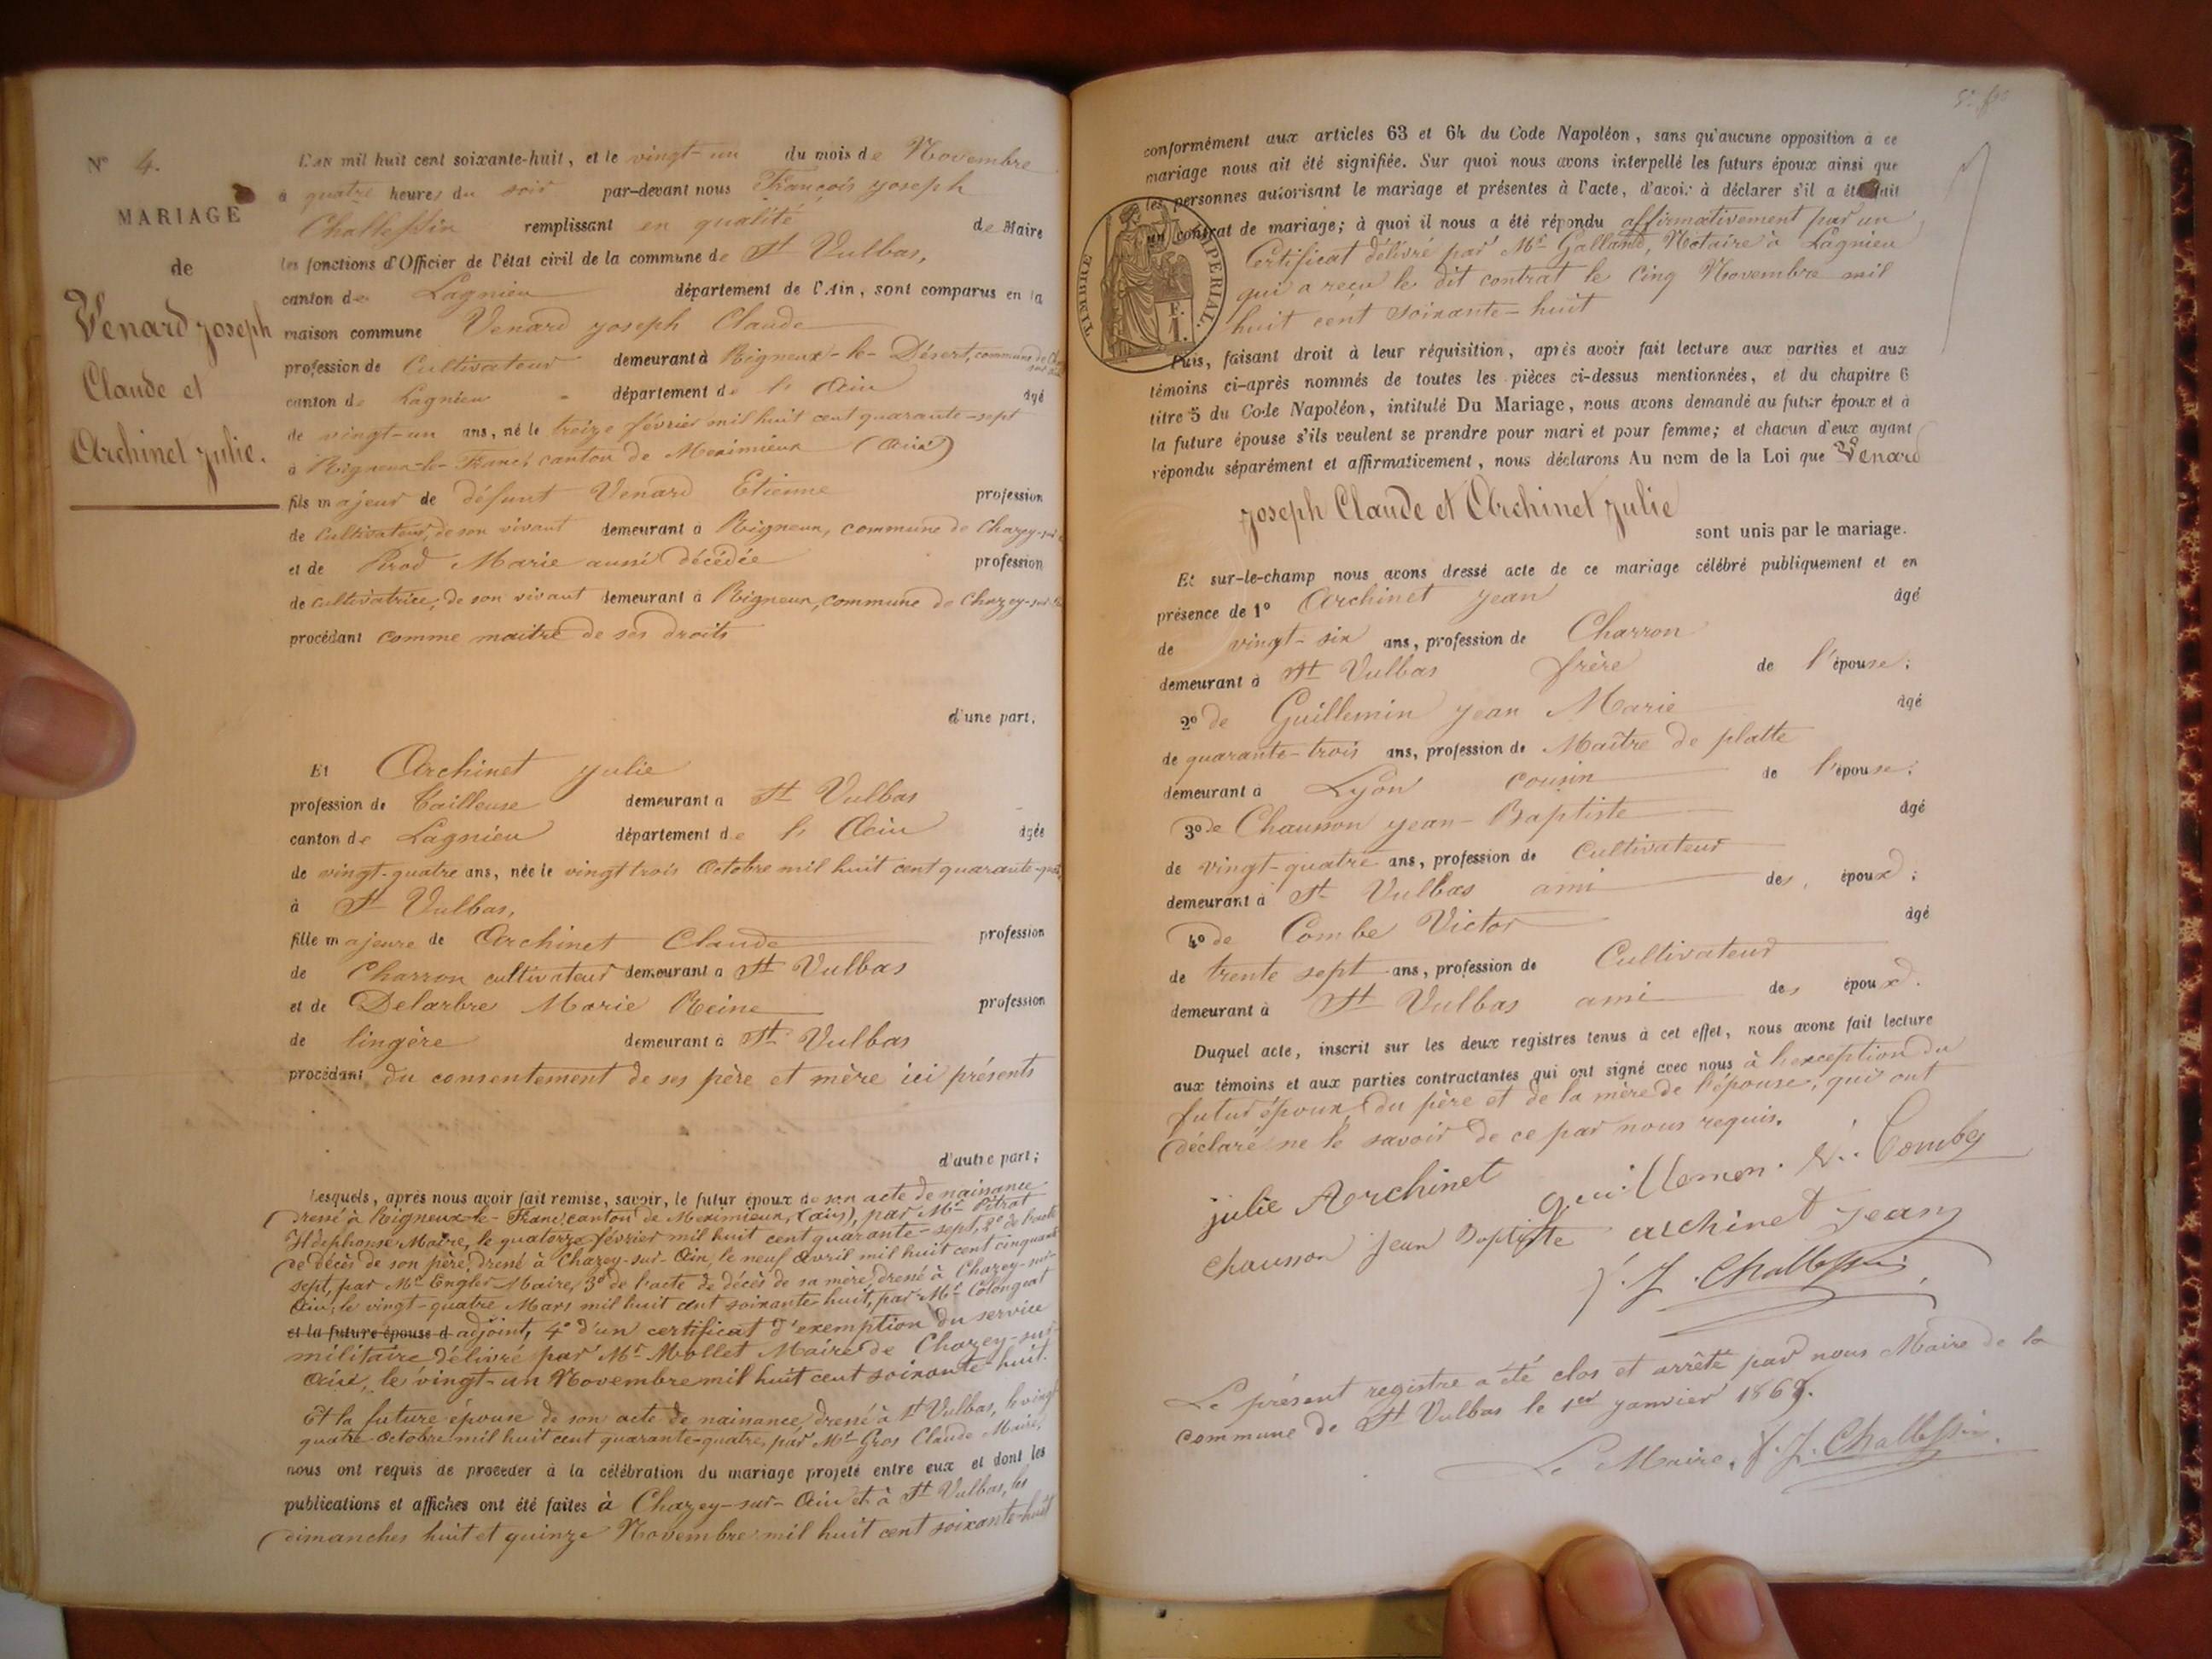 N° 4.
MARIAGE
de
Venard Joseph
Claude et
Archinet Julie.
L'AN mil huit cent soixante-huit, et le vingt-un du mois de Novembre
à quatre heures du soir par-devant nous François Joseph
Challessin remplissant en qualité de Maire
les fonctions d'Officier de l'état civil de la commune de St Vulbas,
canton de Lagnieu département de l'Ain, sont comparus en la
maison commune Venard Joseph Claude
profession de Cultivateur demeurant à Rigneux-le-Désert, commune de
canton de Lagnieu département de l'Ain âgé
de vingt-un ans, né le treize février mil huit cent quarante-sept
à Rigneux-le-Franc, canton de Meximieux (Ain)
fils majeur de défunt Venard Etienne profession
de Cultivateur, de son vivant demeurant à Rigneux, commune de Chazey-sur
et de Prod Marie aussi décédée profession
de cultivatrice, de son vivant demeurant à Rigneux, commune de Chazey-sur
procédant comme maître de ses droits
d'une part,
Et Archinet Julie
profession de Tailleuse demeurant à St Vulbas
canton de Lagnieu département de l'Ain âgée
de vingt-quatre ans, née le vingt trois Octobre mil huit cent quarante-quatre
à St Vulbas,
fille majeure de Archinet Claude profession
de Charron cultivateur demeurant à St Vulbas
et de Delarbre Marie Reine profession
de lingère demeurant à St Vulbas
procédant du consentement de ses père et mère ici présents
d'autre part;
Lesquels, après nous avoir fait remise, savoir, le futur époux de son acte de naissance
dressé à Rigneux-le-Franc, canton de Meximieux, (ain), par Mr Pitrat
Hdephonse Maire, le quatorze février mil huit cent quarante-sept, 2° de l'acte
de décès de son père, dressé à Chazey-sur-Ain, le neuf Avril mil huit cent cinquante
sept, par Mr Engler Maire, 3° de l'acte de décès de sa mère, dressé à Chazey-sur-
Ain, le vingt-quatre Mars mil huit cent soixante huit, par Mr Colongeat
et la future épouse d adjoint, 4° d'un certificat d'exemption du service
militaire délivré par Mr Mollet Maire de Chazey-sur-
Ain, le vingt-un Novembre mil huit cent soixante-huit.
Et la future épouse de son acte de naissance, dressé à St Vulbas, le vingt
quatre Octobre mil huit cent quarante-quatre, par Mr Gros Claude Maire,
nous ont requis de proceder à la célébration du mariage projeté entre eux et dont les
publications et affiches ont été faites à Chazey-sur-Ain et à St Vulbas, les
dimanches huit et quinze Novembre mil huit cent soixante-huit
conformément aux articles 63 et 64 du Code Napoléon, sans qu'aucune opposition à ce
mariage nous ait été signifiée. Sur quoi nous avons interpellé les futurs époux ainsi que
les personnes autorisant le mariage et présentes à l'acte, d'avoir à déclarer s'il a été fait
un contrat de mariage; à quoi il nous a été répondu affirmativement par un
Certificat délivré par Mr Galland, Notaire à Lagnieu
qui a reçu le dit contrat le Cinq Novembre mil
huit cent soixante-huit
TIMBRE IMPERIAL.
F.
1.
Puis, faisant droit à leur réquisition, après avoir fait lecture aux parties et aux
témoins ci-après nommés de toutes les pièces ci-dessus mentionnées, et du chapitre 6
titre 5 du Code Napoléon, intitulé Du Mariage, nous avons demandé au futur époux et à
la future épouse s'ils veulent se prendre pour mari et pour femme; et chacun d'eux ayant
répondu séparément et affirmativement, nous déclarons Au nom de la Loi que Venard
Joseph Claude et Archinet Julie
sont unis par le mariage.
Et sur-le-champ nous avons dressé acte de ce mariage célébré publiquement et en
présence de 1° Archinet Jean âgé
de vingt-six ans, profession de Charron
demeurant à St Vulbas frère de l'épouse;
2° de Guillemin Jean Marie âgé
de quarante-trois ans, profession de Maître de platte
demeurant à Lyon cousin de l'épouse;
3° de Chausson Jean-Baptiste âgé
de vingt-quatre ans, profession de Cultivateur
demeurant à St Vulbas ami des époux;
4° de Combe Victor âgé
de trente sept ans, profession de Cultivateur
demeurant à St Vulbas ami des époux.
Duquel acte, inscrit sur les deux registres tenus à cet effet, nous avons fait lecture
aux témoins et aux parties contractantes qui ont signé avec nous à l'exception du
futur époux, du père et de la mère de l'épouse, qui ont
déclaré ne le savoir de ce par nous requis.
julie Archinet guillemin V. Combe
Chausson Jean Baptiste archinet Jean
f. J. Challessin
Le présent registre a été clos et arrêté par nous Maire de la
commune de St Vulbas le 1er Janvier 1869.
Le Maire, f. J. Challessin.